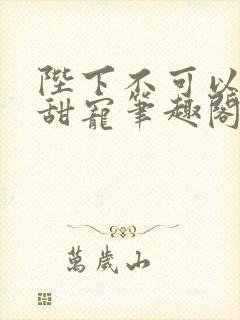 陛下不可以
甜寵筆趣閣
萬歲山